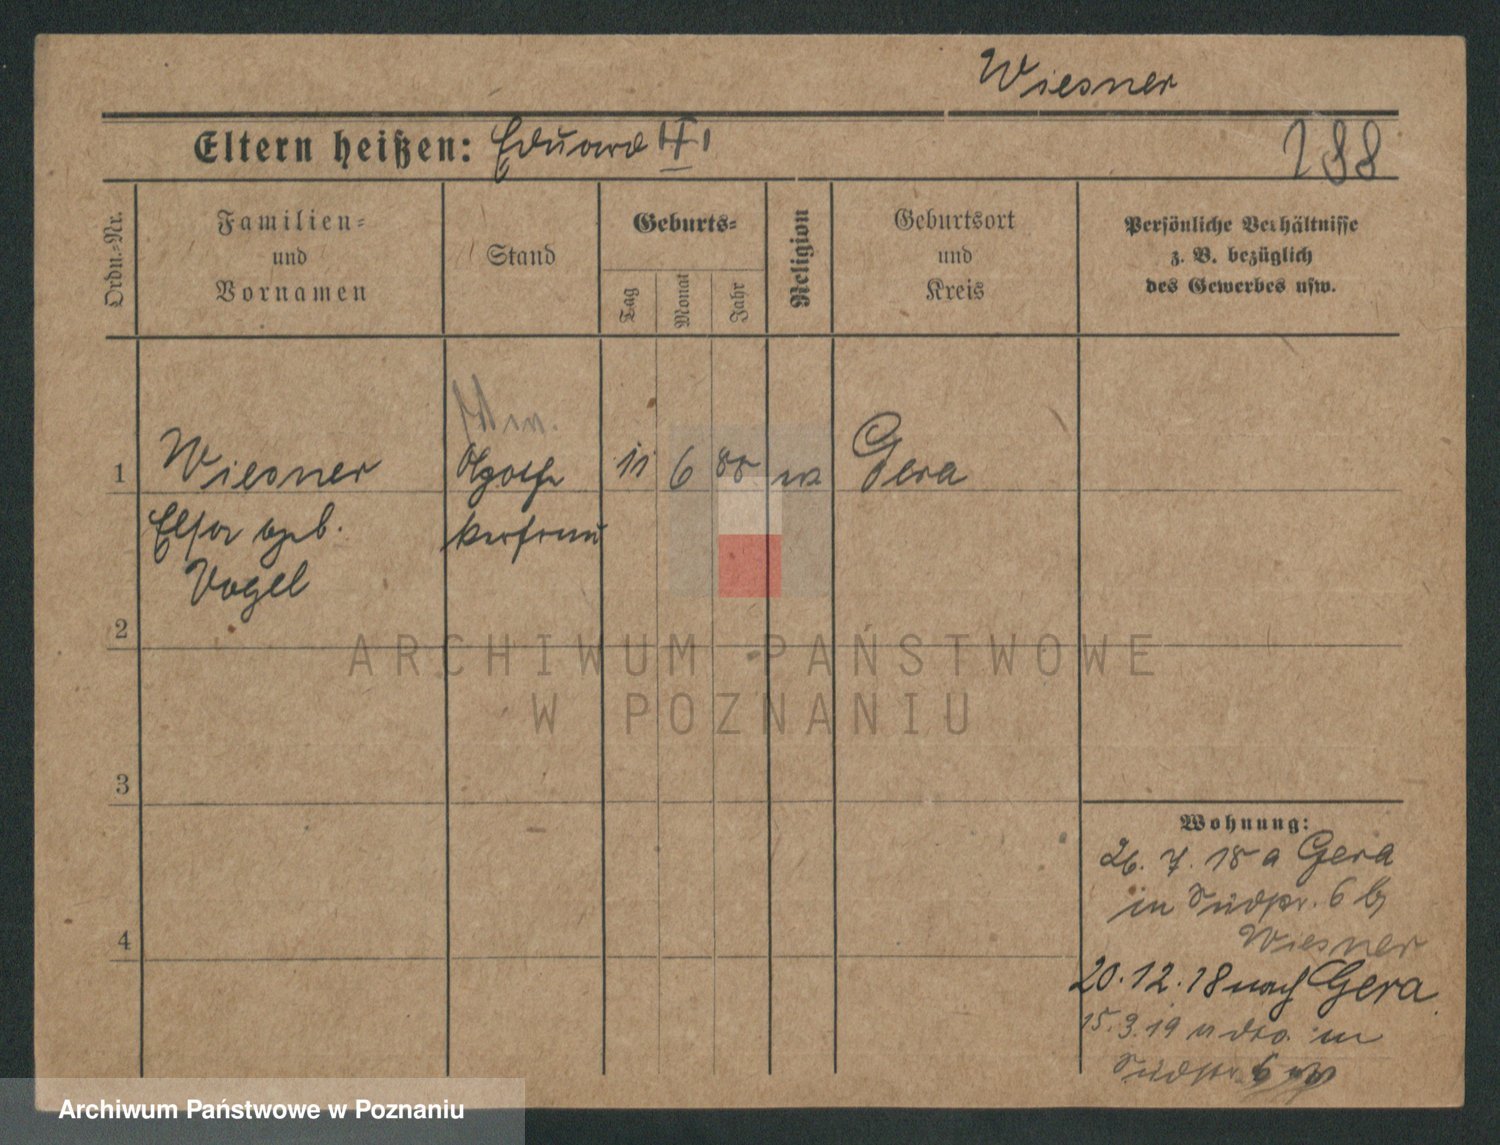 Wiesner
Eltern heißen: Eduard
188
Ordn.-Nr.
Familien-
und
Vornamen
Stand
Geburts-
Tag
Monat
Jahr
Religion
Geburtsort
und
Kreis
Persönliche Verhältnisse
z. B. bezüglich
des Gewerbes usw.
1 Wiesner Apothe 11 6 88 Gera
Elsa geb. kerfrau
Vogel
2
ARCHIWUM PAŃSTWOWE
W POZNANIU
3
Wohnung:
26. 7. 18 a Gera
in Südstr. 6 b
Wiesner
4
20. 12. 18 nach Gera
15. 3. 19 v dto. in
Südstr. 6
Archiwum Państwowe w Poznaniu